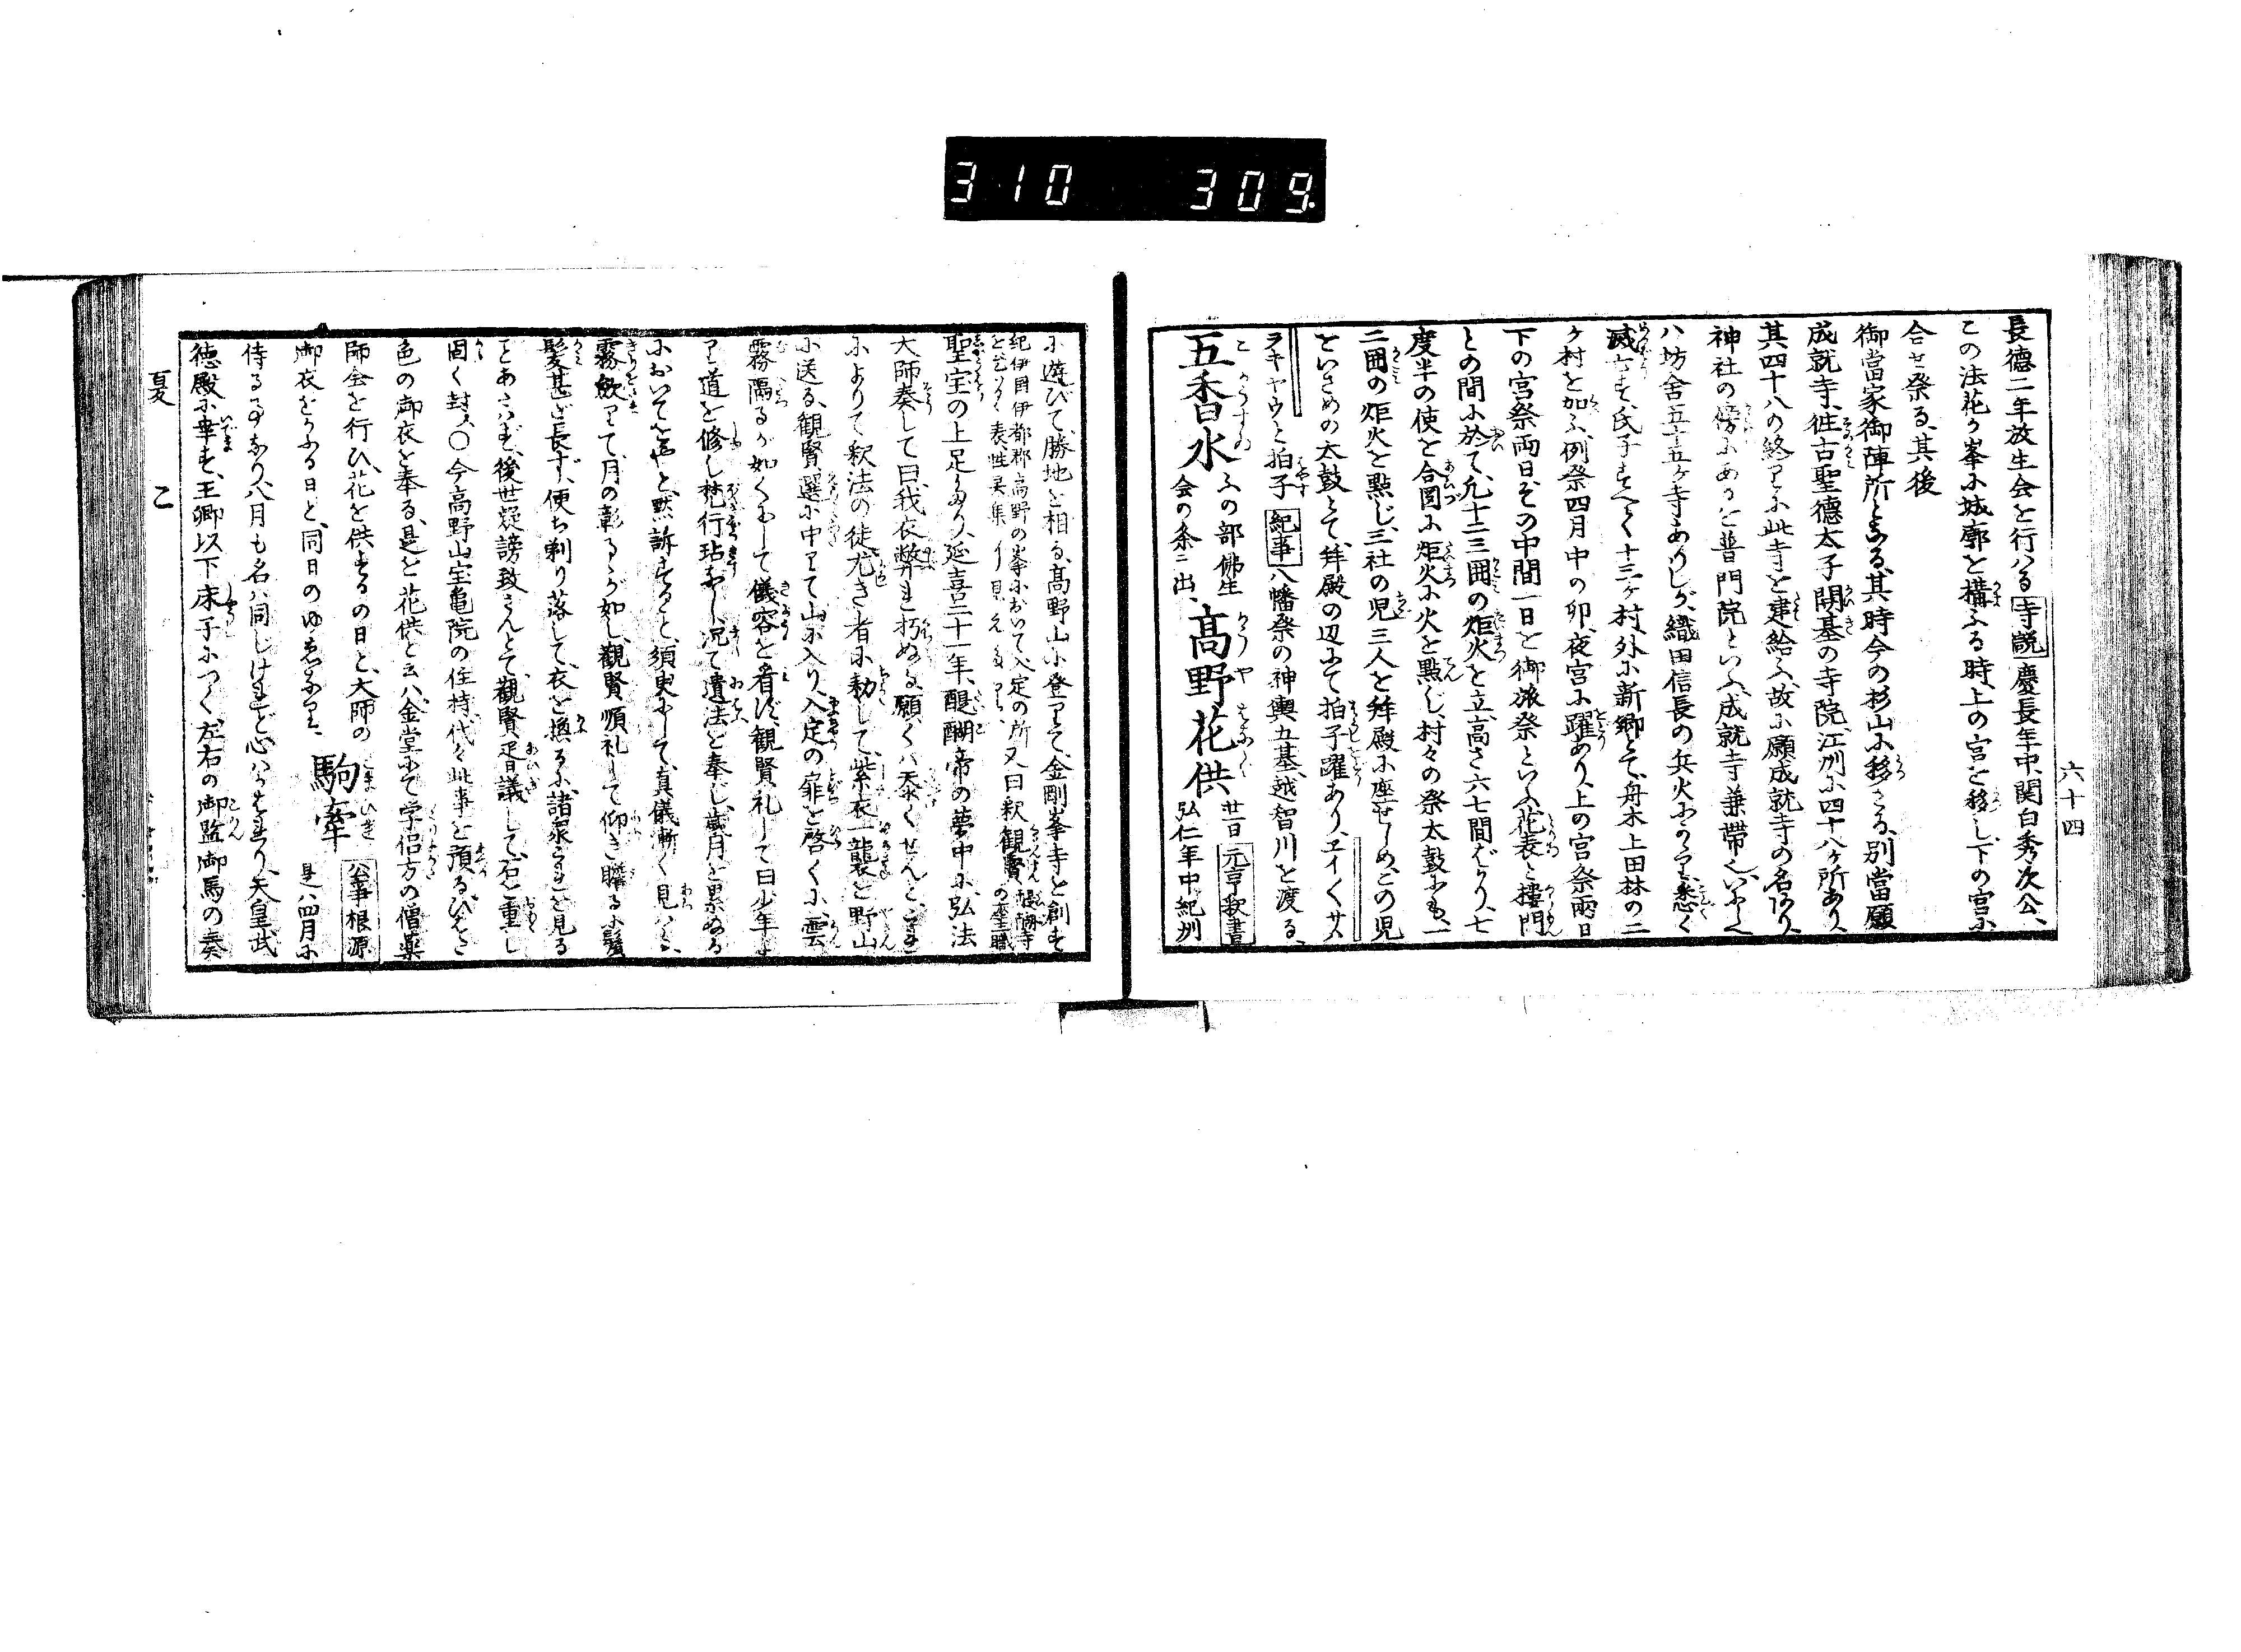 310 309
六十四
長徳二年放生会を行はる寺説慶長年中、関白秀次公、
この法花が峯に城廓を構ふる時、上の宮を移し、下の宮に
合せ祭る、其後
御當家御陣所となる、其時今の杉山に移さる、別當願
成就寺、往古聖徳太子開基の寺院、江州に四十八ヶ所あり、
其四十八の終りに此寺を建給ふ、故に願成就寺の名あり、
神社の傍にあるを普門院といふ、成就寺兼帯く、いにしへ
ハ坊舎五十五ヶ寺ありしが、織田信長の兵火にかゝり、悉く
滅亡す、氏子すべて十三ヶ村、外に新郷とて、舟木上田林の二
ヶ村を加ふ、例祭四月中の卯、夜宮に躍あり、上の宮祭両日
下の宮祭両日、その中間一日を御旅祭といふ、花表と樓門
との間に於て、九十二三囲の炬火を立、高さ六七間ばかり、七
度半の使を合図に炬火に火を點じ、村々の祭太鼓にも、一
二囲の炬火を點じ、三社の児三人を拝殿に座せしめ、この児
といさめの太鼓とて、拝殿の辺にて拍子躍あり、ヱイ〱サヽ
ヲキャウと拍子紀事八幡祭の神輿五基、越智川を渡る、
五香水 ふの部佛生
会の条ニ出、 高野花供 廿一日元亨釈書
弘仁年中紀州
に遊びて、勝地を相る、髙野山に登りて、金剛峯寺を創す
紀伊国伊都郡高野の峯において入定の所又曰釈観賢醍醐寺
の座主職
聖宝の上足なり、延喜二十一年、醍醐帝の夢中に、弘法
大師奏して曰、我衣弊れ朽ぬる、願くハ
によりて釈法の徒尤き者に勅して、紫衣一襲を野山
に送る、観賢選に中りて山に入り、入定の扉を啓くに、雲
霧隔るが如くにして儀容を看ず、観賢礼して曰少年よ
り道を修し梵行玷なし、况て遺法を奉じ、歳月を累ぬる
において、默訴すると、須臾にして、真儀漸く見ハる、
霧斂りて、月の彰るゝが如し、観賢順礼して仰き瞻るに鬚
髪甚だ長ず、便ち剃り落して、衣を換るに、諸衆これを見る
ことあたはず、後世疑謗致さんとて、観賢、石を重し
固く封ス、〇今高野山宝亀院の住持代々此事を預る
色の御衣を奉る、是を花供と云ハ、金堂にて学侶方の僧薬
師会を行ひ花を供するの日と、大師の
御衣をかふる日と、同日のゆゑなり、 駒牽 公事根源
是ハ四月に
侍る事なり、八月も名ハ同じけれど心ハかはれり、天皇武
徳殿に幸す、王卿以下床子につく、左右の御監御馬の奏
夏 こ